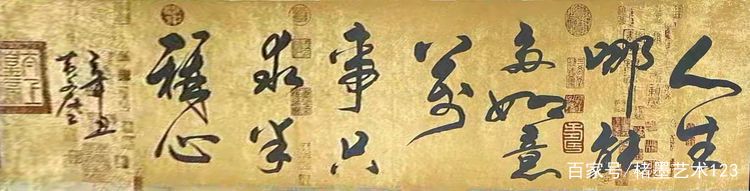 人生
哪能
多如意
萬
事只
求半
稱心
辛丑
百家号/楮墨艺术123